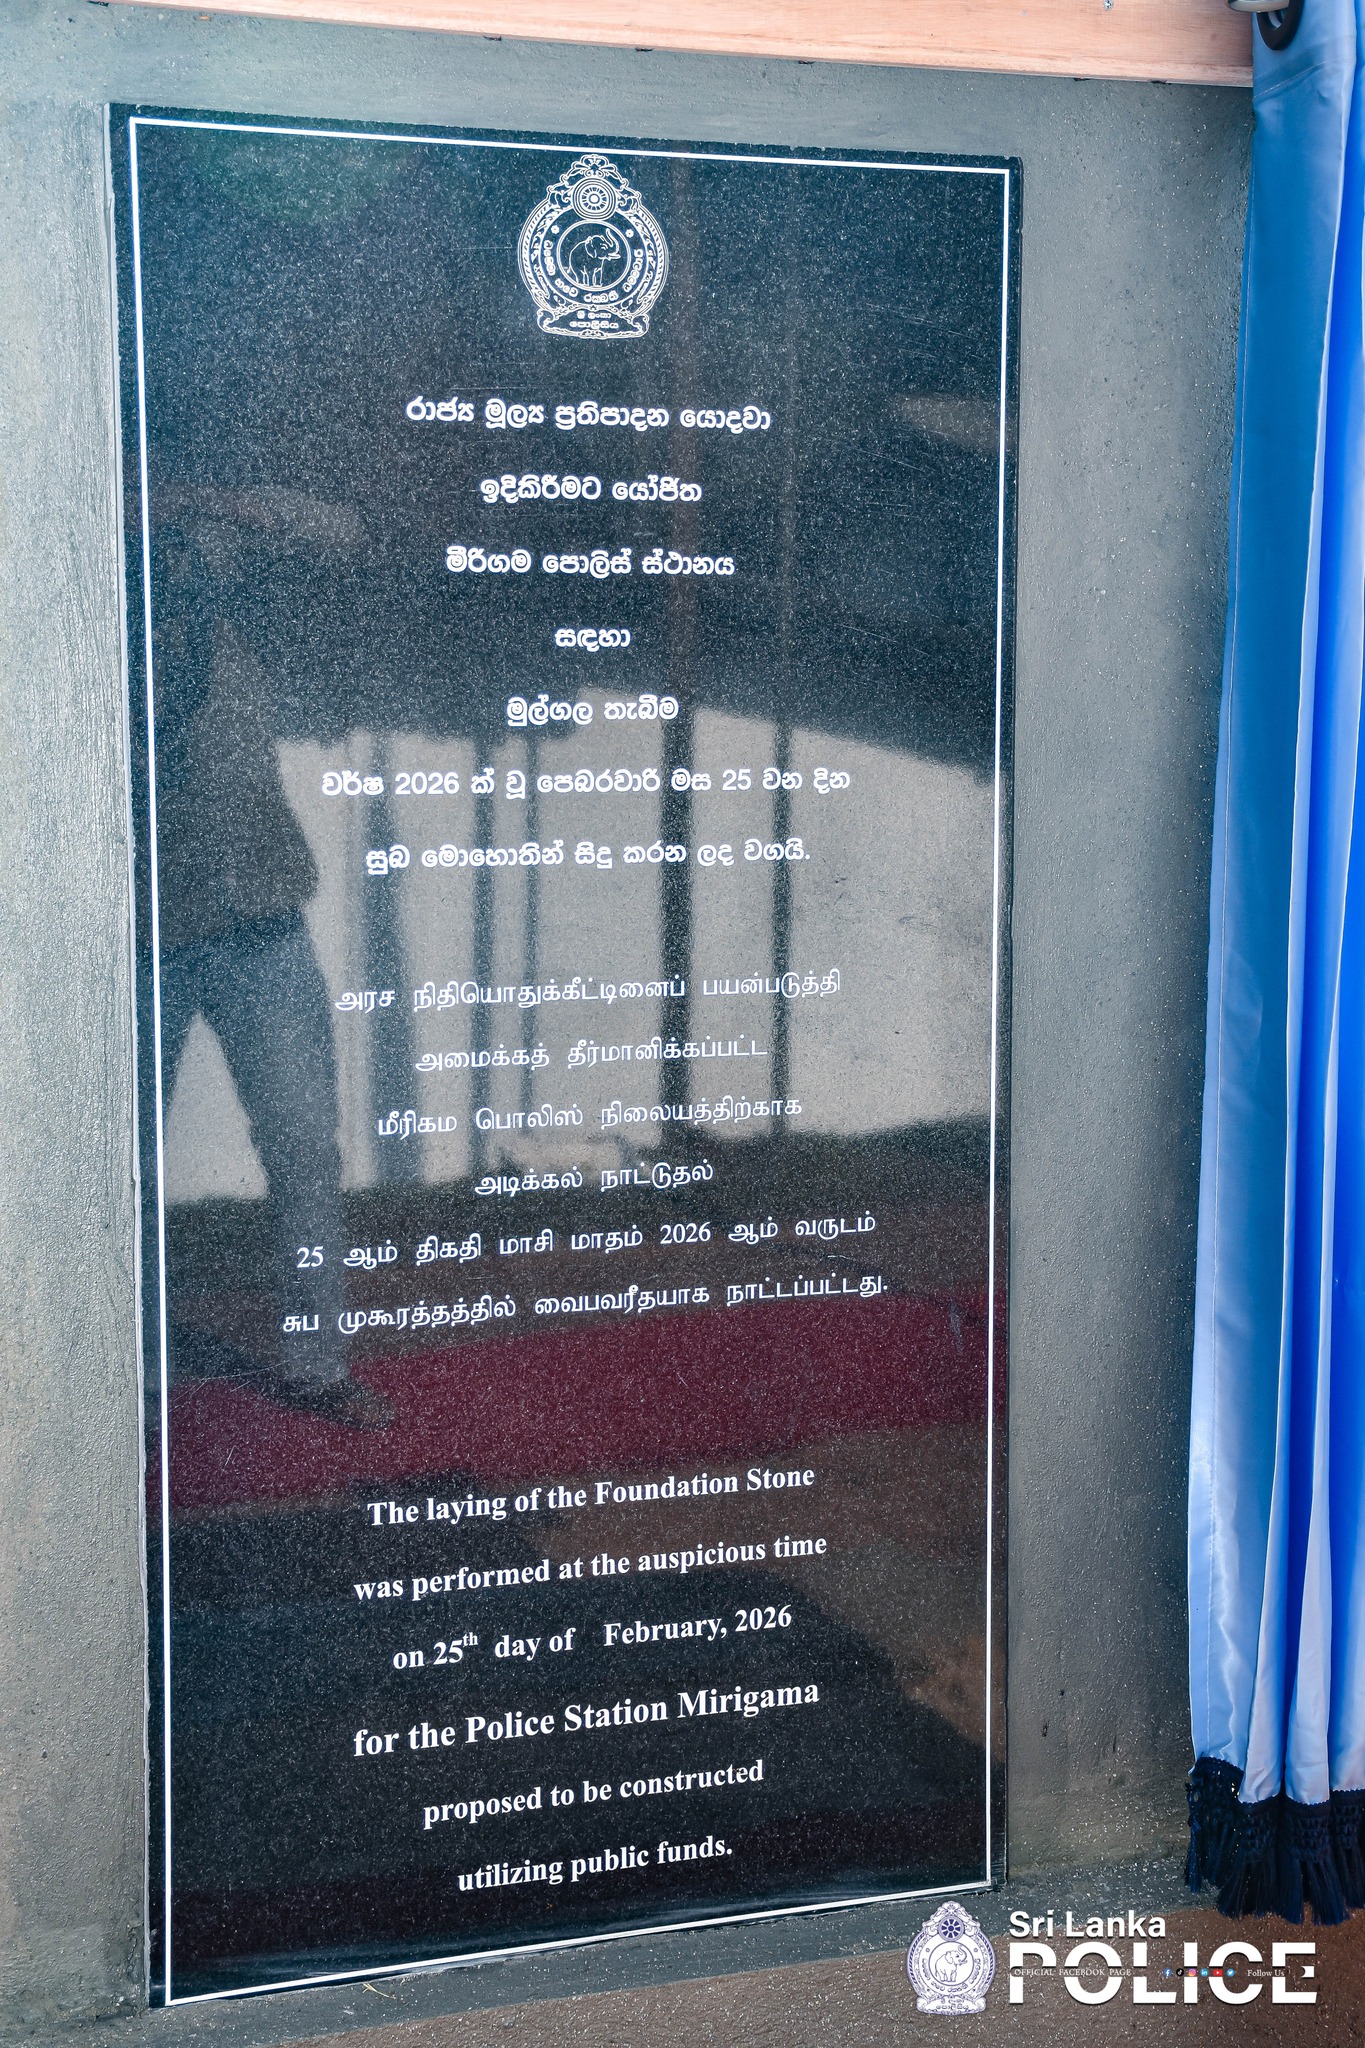 රාජ්‍ය මූල්‍ය ප්‍රතිපාදන යොදවා
ඉදිකිරීමට යෝජිත
මීරිගම පොලිස් ස්ථානය
සඳහා
මුල්ගල තැබීම
වර්ෂ 2026 ක් වූ පෙබරවාරි මස 25 වන දින
සුබ මොහොතින් සිදු කරන ලද වගයි.
அரச நிதியொதுக்கீட்டினைப் பயன்படுத்தி
அமைக்கத் தீர்மானிக்கப்பட்ட
மீரிகம பொலிஸ் நிலையத்திற்காக
அடிக்கல் நாட்டுதல்
25 ஆம் திகதி மாசி மாதம் 2026 ஆம் வருடம்
சுப முகூரத்தத்தில் வைபவரீதயாக நாட்டப்பட்டது.
The laying of the Foundation Stone
was performed at the auspicious time
on 25th day of February, 2026
for the Police Station Mirigama
proposed to be constructed
utilizing public funds.
Sri Lanka
POLICE
OFFICIAL FACEBOOK PAGE Follow Us